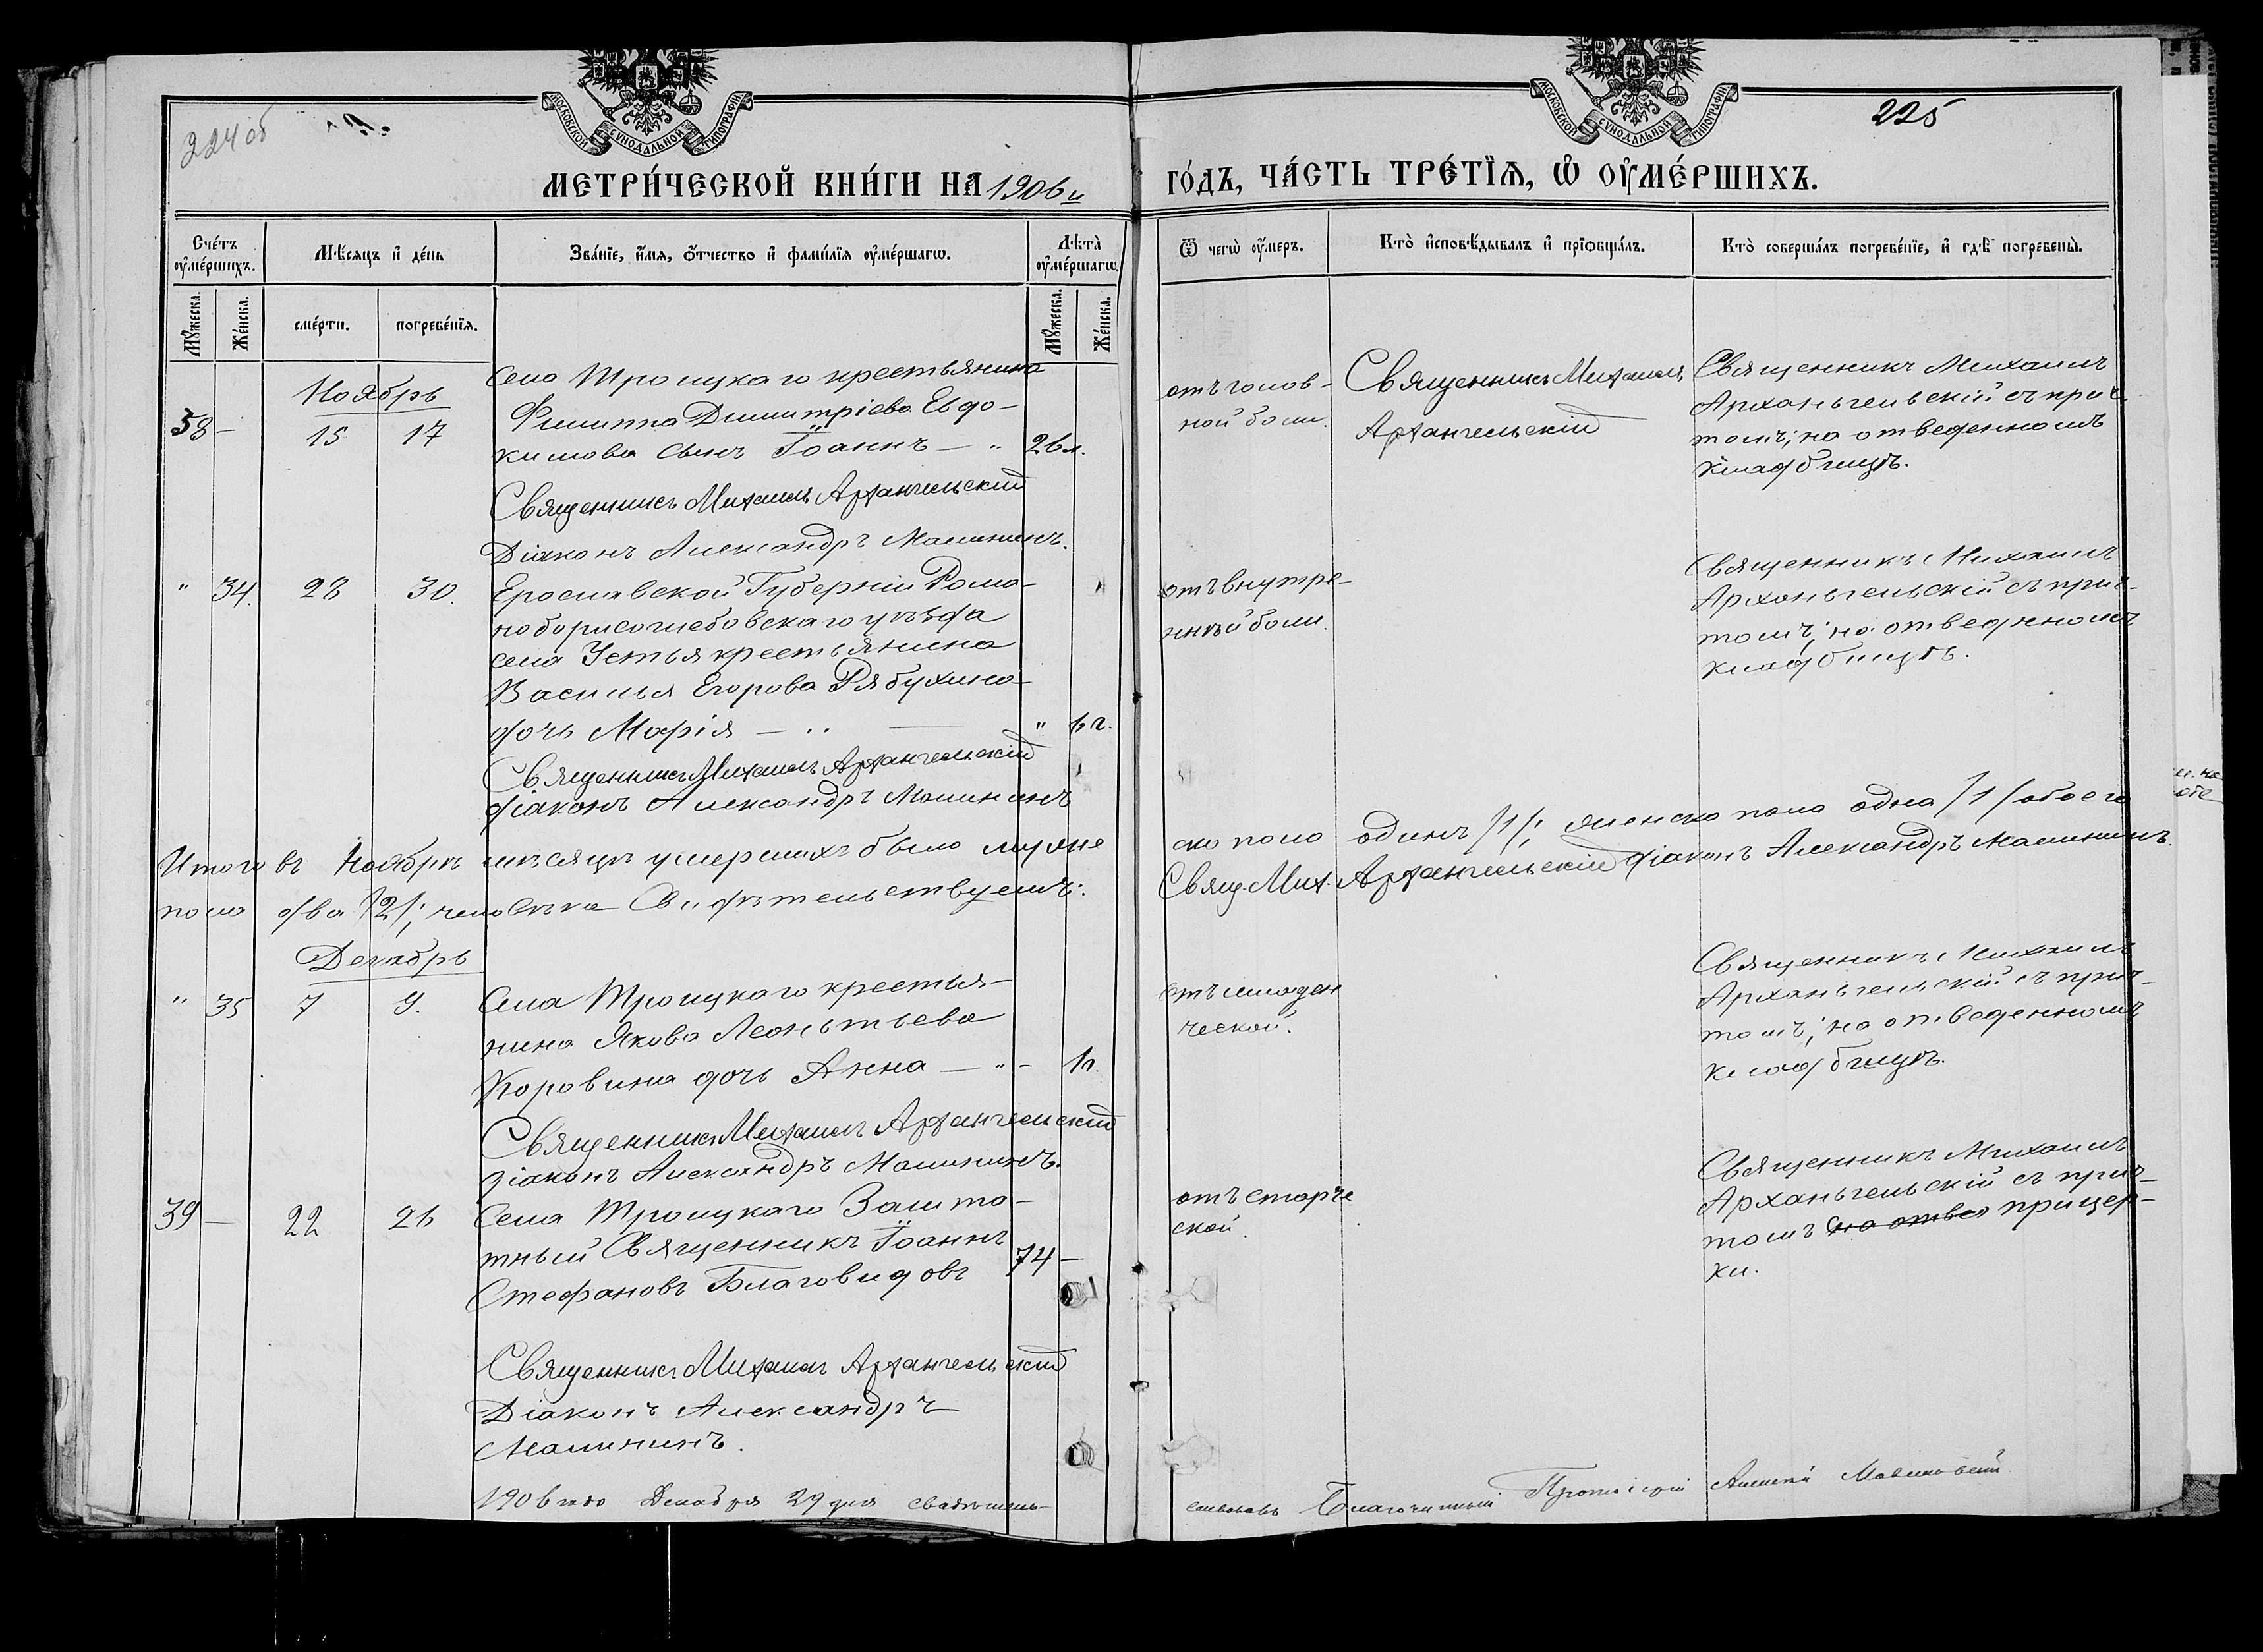 224 об
225
МОСКОВСКОЙ СУНОДАЛЬНОЙ ТИПОГРАФІИ
МОСКОВСКОЙ СУНОДАЛЬНОЙ ТИПОГРАФІИ
МЕТРИ́ЧЕСКОЙ КНИ́ГИ НА 1906 й
ГО́ДЪ, ЧА́СТЬ ТРЕ́ТЇѦ, Ѡ ОУМЕ́РШИХЪ.
Сче́тъ оуме́ршихъ.
Мѣ́сяцъ и де́нь
Зва́нїе, и́мя, о́тчество и фами́лїя оуме́ршагѡ.
Лѣта̀ оуме́ршагѡ.
Ѿ чегѡ̀ оу́меръ.
Кто̀ исповѣ́дывалъ и прїѡбща́лъ.
Кто̀ соверша́лъ погребе́нїе, и гдѣ̀ погребены̀.
Мꙋ́жеска.
Же́нска.
сме́рти.
погребе́нїя.
Мꙋ́жеска.
Же́нска.
Ноябрь
38 –
15
17
Села Троицкаго крестьянина
Филиппа Димитріева Евдо-
кимова сынъ Іоаннъ — "
26 л.
отъ голов-
ной боли.
Священникъ Михаилъ
Архангельскій
Священникъ Михаилъ
Архангельскій съ прич-
томъ; на отведенномъ
кладбищѣ.
Священникъ Михаилъ Архангельскій
Діаконъ Александръ Малининъ.
" 34.
28
30.
Ерославской Губерніи Рома-
ноборисоглебовскаго уѣзда
села Устья крестьянина
Василья Егорова Рябухина
дочь Марія — "
"
1 г.
отъ внутре-
нней боли.
Священникъ Михаилъ
Архангельскій съ прич-
томъ; на отведенномъ
кладбищѣ.
Священникъ Михаилъ Архангельскій
діаконъ Александръ Малининъ
Итого въ Ноябрѣ мѣсяцѣ умершихъ было муже
ска пола одинъ /1/; женска пола одна /1/ обоего
пола два /2/; человѣка Свидѣтельствуемъ:
Свящ. Мих. Архангельскій діаконъ Александръ Малининъ.
Декабрь
" 35
7
9.
Села Троицкаго крестья-
нина Якова Леонтьева
Коровина дочь Анна — " –
1 г.
отъ младен
ческой.
Священникъ Михаилъ
Архангельскій съ прич-
томъ; на отведенномъ
кладбищѣ.
Священникъ Михаилъ Архангельскій
діаконъ Александръ Малининъ.
39 –
22
26
Села Троицкаго Зашта-
тный Священникъ Іоаннъ
Стефановъ Благовидовъ
74 –
отъ старче
ской.
Священникъ Михаилъ
Архангельскій съ прич-
томъ на отвед прицер-
кви.
Священникъ Михаилъ Архангельскій
Діаконъ Александръ
Малининъ.
1906 года Декабря 29 дня свидѣтель-
ствовалъ Благочинный Протоіерей Алексѣй